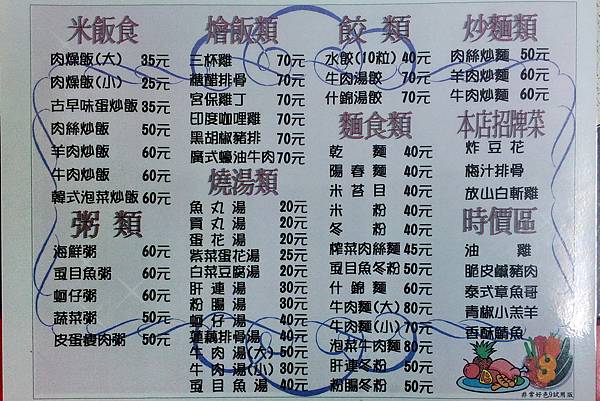 米飯食
肉燥飯(大) 35元
肉燥飯(小) 25元
古早味蛋炒飯 35元
肉絲炒飯 50元
羊肉炒飯 60元
牛肉炒飯 60元
韓式泡菜炒飯 60元
粥類
海鮮粥 60元
虱目魚粥 60元
蚵仔粥 60元
蔬菜粥 50元
皮蛋瘦肉粥 50元
燴飯類
三杯雞 70元
糖醋排骨 70元
宮保雞丁 70元
印度咖哩雞 70元
黑胡椒豬排 70元
廣式蠔油牛肉 70元
燒湯類
魚丸湯 20元
貢丸湯 20元
蛋花湯 20元
紫菜蛋花湯 25元
白菜豆腐湯 20元
肝連湯 30元
粉腸湯 30元
蚵仔湯 40元
蓮藕排骨湯 40元
牛肉湯(大) 50元
牛肉湯(小) 30元
虱目魚湯 40元
餃類
水餃(10粒) 40元
牛肉湯餃 70元
什錦湯餃 70元
麵食類
乾麵 40元
陽春麵 40元
米苔目 40元
米粉 40元
冬粉 40元
榨菜肉絲麵 45元
虱目魚冬粉 50元
什錦麵 60元
牛肉麵(大) 80元
牛肉麵(小) 70元
泡菜牛肉麵 80元
肝連冬粉 50元
粉腸冬粉 50元
炒麵類
肉絲炒麵 50元
羊肉炒麵 60元
牛肉炒麵 60元
本店招牌菜
炸豆花
梅汁排骨
放山白斬雞
時價區
油雞
脆皮鹹豬肉
泰式章魚哥
青椒小羔羊
香酥鯖魚
非常好色9試用版